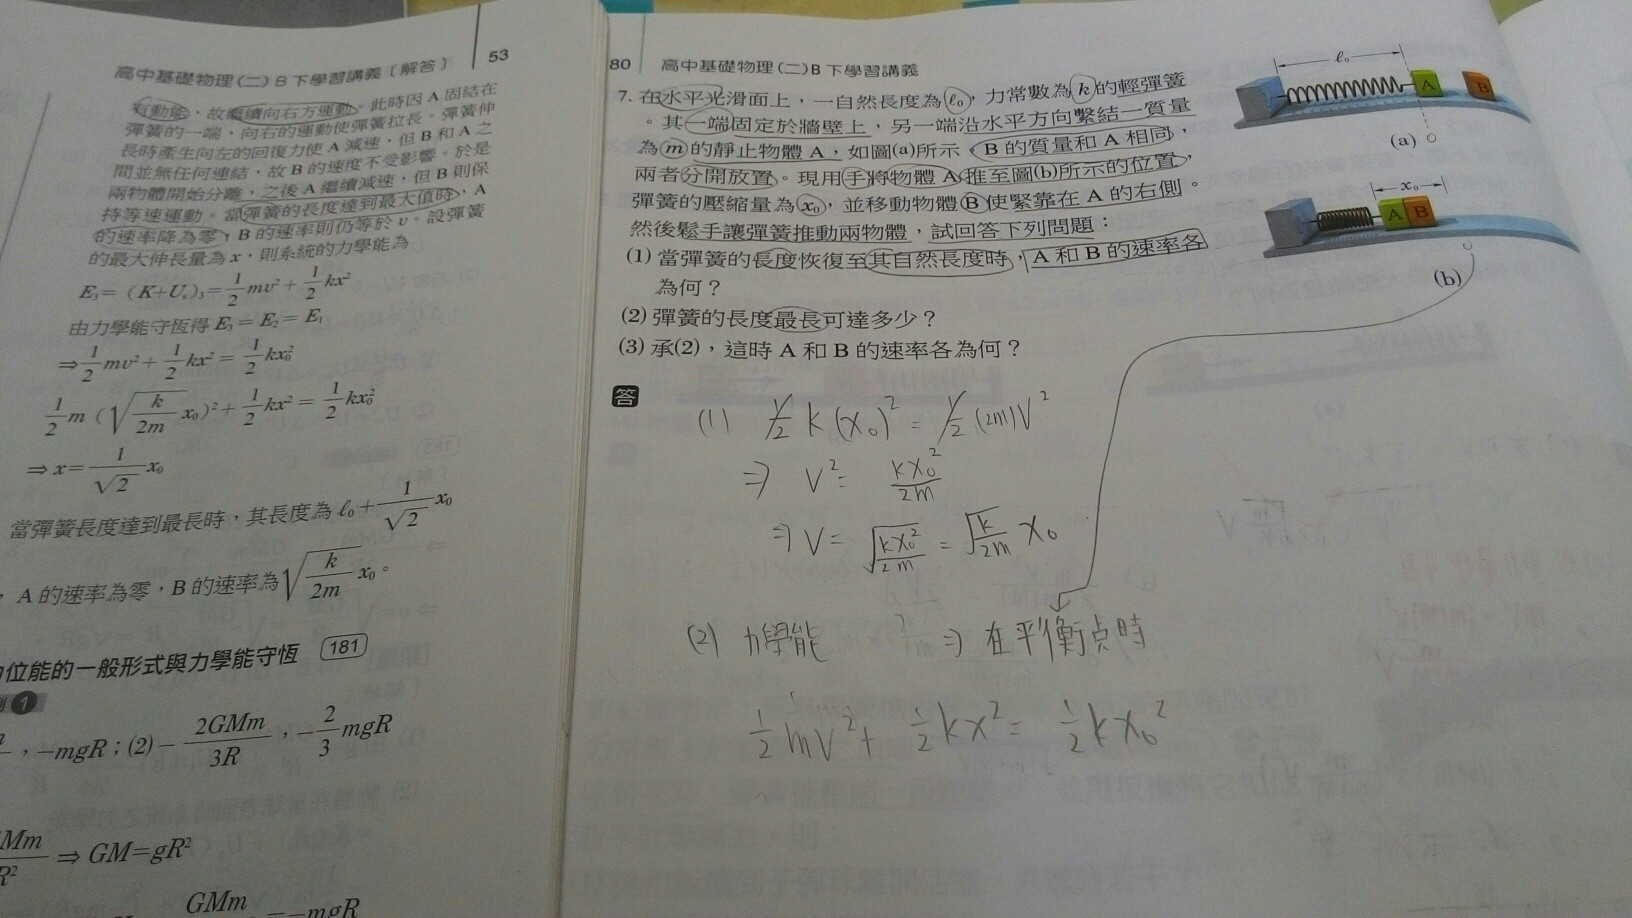 高中基礎物理(二)B下學習講義〔解答〕 53
有動能,故繼續向右方運動。此時因A固結在
彈簧的一端,向右的運動使彈簧拉長。彈簧伸
長時產生向左的回復力使A減速,但B和A之
間並無任何連結,故B的速度不受影響。於是
兩物體開始分離,之後A繼續減速,但B則保
持等速運動。當彈簧的長度達到最大值時,A
的速率降為零,B的速率則仍等於v。設彈簧
的最大伸長量為x,則系統的力學能為
E₃=(K+Uₛ)₃=1/2 mv²+1/2 kx²
由力學能守恆得E₃=E₂=E₁
⇒1/2 mv²+1/2 kx²=1/2 kx₀²
1/2 m(√(k/2m) x₀)²+1/2 kx²=1/2 kx₀²
⇒x=1/√2 x₀
當彈簧長度達到最長時,其長度為ℓ₀+1/√2 x₀
,A的速率為零,B的速率為√(k/2m) x₀。
位能的一般形式與力學能守恆 181
1
,-mgR;(2)-2GMm/3R,-2/3 mgR
Mm/R²⇒GM=gR²
GMm
-mgR
80 高中基礎物理(二)B下學習講義
7. 在水平光滑面上,一自然長度為ℓ₀,力常數為k的輕彈簧
。其一端固定於牆壁上,另一端沿水平方向繫結一質量
為m的靜止物體A,如圖(a)所示。B的質量和A相同,
兩者分開放置。現用手將物體A推至圖(b)所示的位置,
彈簧的壓縮量為x₀,並移動物體B使緊靠在A的右側。
然後鬆手讓彈簧推動兩物體,試回答下列問題:
(1) 當彈簧的長度恢復至其自然長度時,A和B的速率各
為何?
(2) 彈簧的長度最長可達多少?
(3) 承(2),這時A和B的速率各為何?
ℓ₀
A
B
(a)
x₀
A
B
(b)
答
(1) 1/2 k(x₀)²=1/2 (2m)V²
⇒ V²=kx₀²/2m
⇒ V=√(kx₀²/2m)=√(k/2m) x₀
(2) 力學能 ⇒ 在平衡点時
1/2 mV²+1/2 kx²=1/2 kx₀²